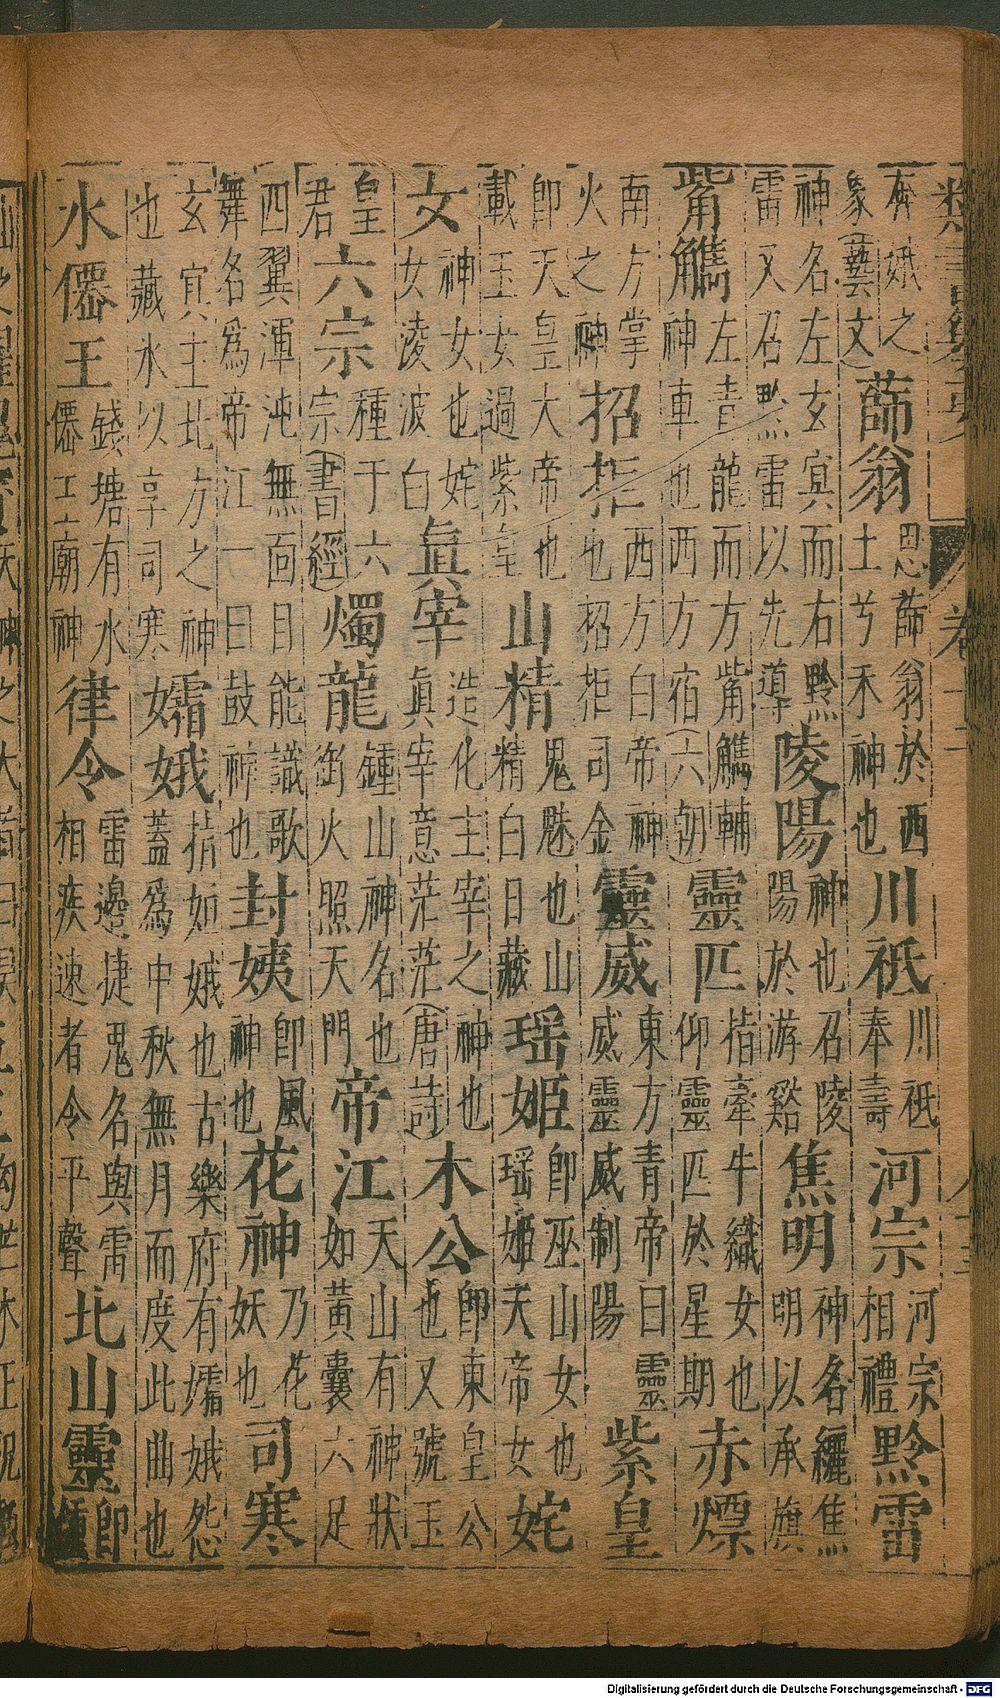 類書纂要 卷十二
奔娥之象(藝文)薛翁思薛翁於西土兮禾神也川祇川祇奉壽河宗河宗相禮黔雷
神名左玄冥而右黔雷又名黔雷以先導陵陽神也召陵陽於游谿焦明神名纚焦明以承旗
觜觿左青龍而方觜觿輔神車也西方宿(六朝)靈匹指牽牛織女也仰靈匹於星期赤熛
南方掌火之神招拒西方白帝神也招拒司金靈威東方青帝曰靈威靈威制陽紫皇
卽天皇大帝也載玉女過紫皇山精鬼魅也山精白日藏瑶姬卽巫山女也瑶姬天帝女姹
女神女也姹女淩波白眞宰造化主宰之神也眞宰意茫茫(唐詩)木公卽東皇公也又號玉
皇君六宗種于六宗(書經)燭龍鍾山神名也銜火照天門帝江天山有神狀如黃囊六足
四翼渾沌無面目能識歌舞名為帝江一曰鼓祈也封姨卽風神也花神乃花妖也司寒
玄冥主北方之神也藏氷以享司寒孀娥指姮娥也古樂府有孀娥怨蓋為中秋無月而度此曲也
水僊王錢塘有水僊王廟神律令雷邊捷鬼名與雷相疾速者令平聲北山靈卽鍾
Digitalisierung gefördert durch die Deutsche Forschungsgemeinschaft - DFG